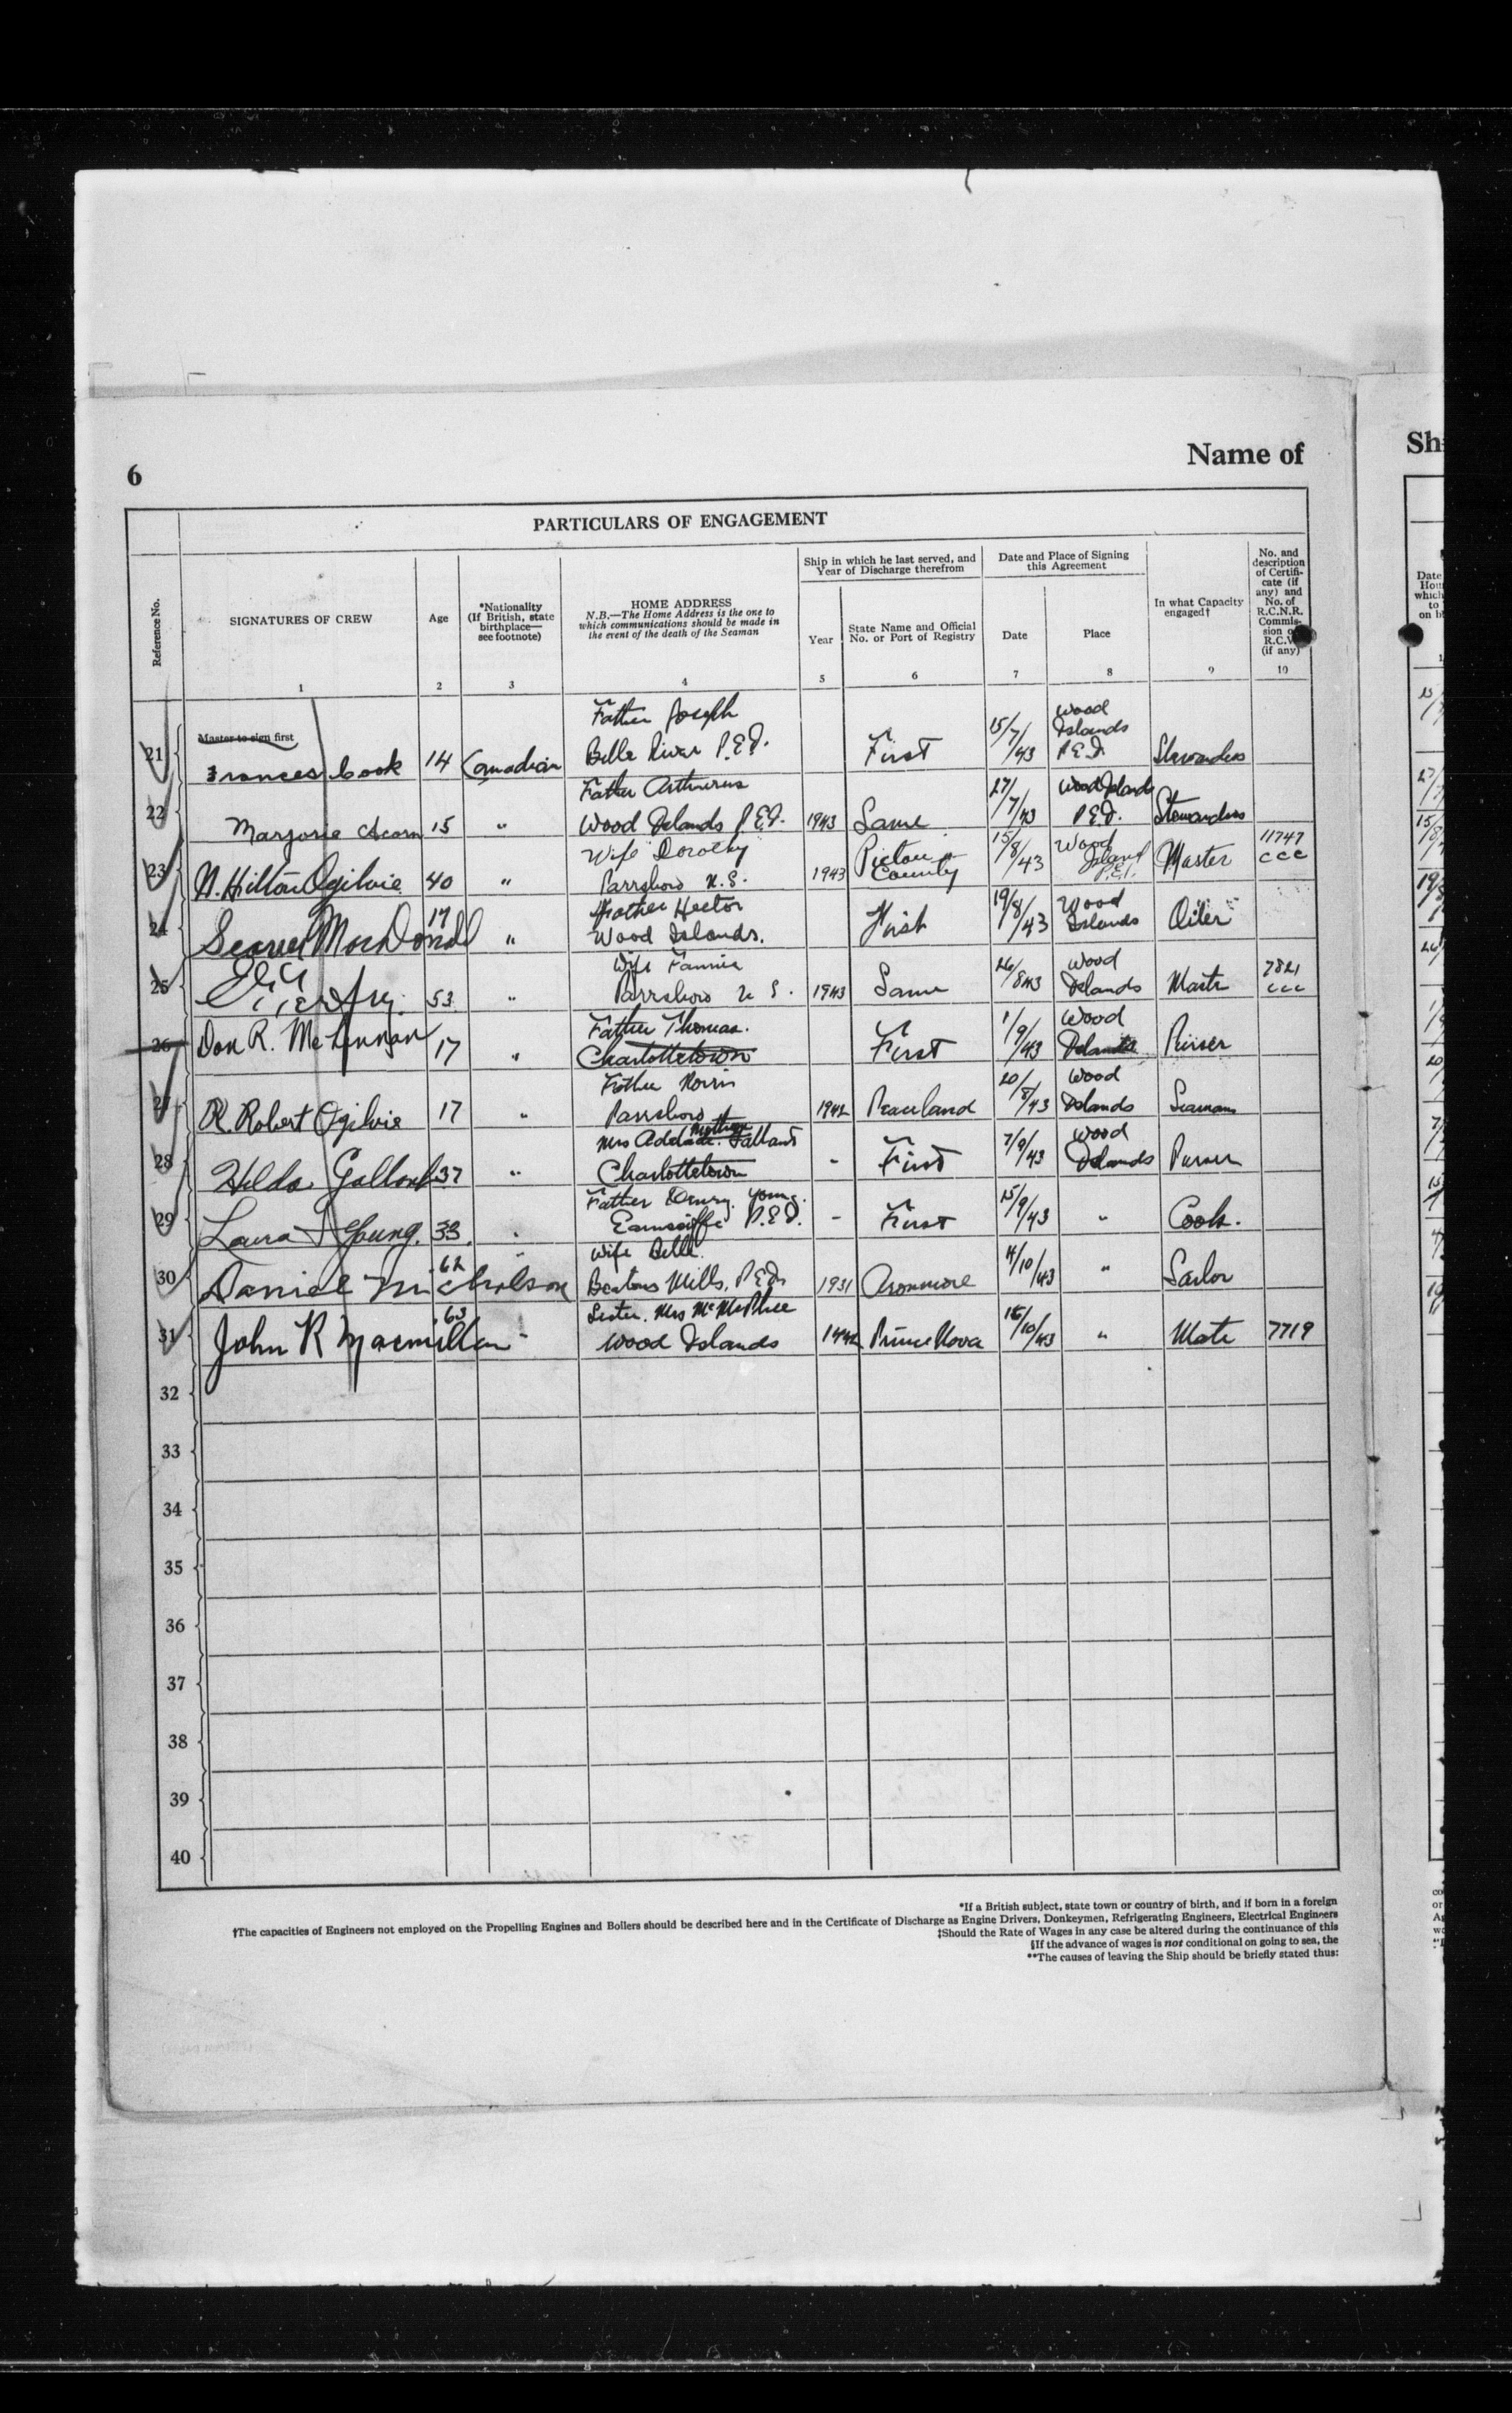 6
Name of
Sh
PARTICULARS OF ENGAGEMENT
Reference No.
SIGNATURES OF CREW
1
Age
2
*Nationality
(If British, state
birthplace—
see footnote)
3
HOME ADDRESS
N.B.—The Home Address is the one to
which communications should be made in
the event of the death of the Seaman
4
Ship in which he last served, and
Year of Discharge therefrom
Year
5
State Name and Official
No. or Port of Registry
6
Date and Place of Signing
this Agreement
Date
7
Place
8
In what Capacity
engaged†
9
No. and
description
of Certifi-
cate (if
any) and
No. of
R.C.N.R.
Commis-
sion o
R.C.V
(if any)
10
Master to sign first
21 Frances Cook 14 Canadian Father Joseph
Belle River P.E.I. First 15/7/43 Wood
Islands
P.E.I. Stewardess
22 Marjorie Acorn 15 " Father
Wood Islands P.E.I. 1943 Same 27/7/43 Wood Islands
P.E.I. Stewardess
23 N. Hilton Ogilvie 40 " Wife Dorothy
Parrsboro N.S. 1943 Pictou
County 15/8/43 Wood
Island
P.E.I. Master 11747
CCC
24 MacDonald 17 " Father Hector
Wood Islands. First 19/8/43 Wood
Islands Oiler
25 53 " Wife Fannie
Parrsboro N S. 1943 Same 26/8/43 Wood
Islands Master 7821
CCC
26 Don R. McLennan 17 " Father Thomas.
Charlottetown First 1/9/43 Wood
Islands Purser
27 R. Robert Ogilvie 17 " Father
Parrsboro 1942 20/8/43 Wood
Islands Seaman
28 Hilda Gallant 37 " Mother
Mrs Gallant
Charlottetown - First 7/9/43 Wood
Islands Purser
29 Laura Young. 33. " Father Young.
Earnscliffe P.E.I. - First 15/9/43 " Cook.
30 Daniel Nicholson 62 " Wife Belle.
Beatons Mills, P.E.I. 1931 Aranmore 4/10/43 " Sailor
31 John R Macmillan 63 " Sister. Mrs McPhee
Wood Islands 1942 Prince Nova 15/10/43 " Mate 7719
32
33
34
35
36
37
38
39
40
*If a British subject, state town or country of birth, and if born in a foreign
†The capacities of Engineers not employed on the Propelling Engines and Boilers should be described here and in the Certificate of Discharge as Engine Drivers, Donkeymen, Refrigerating Engineers, Electrical Engineers
‡Should the Rate of Wages in any case be altered during the continuance of this
§If the advance of wages is not conditional on going to sea, the
**The causes of leaving the Ship should be briefly stated thus: